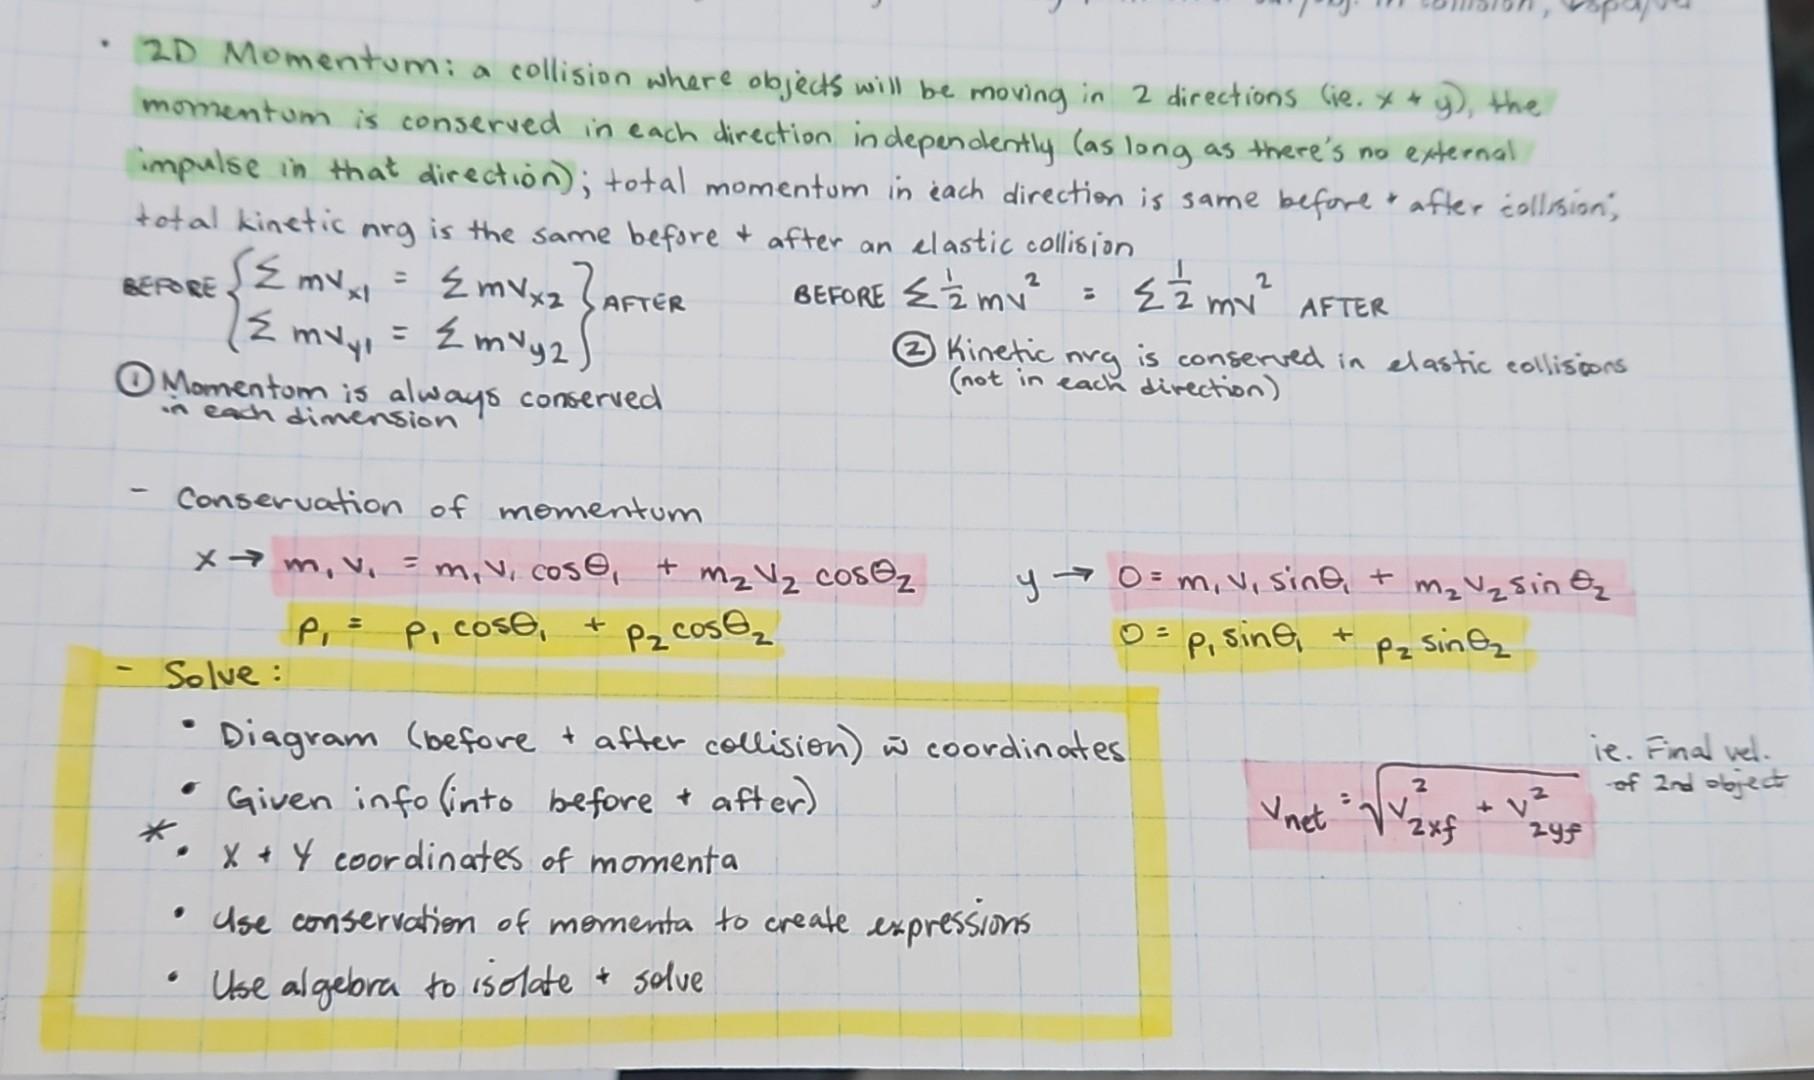 in collision,
• 2D Momentum: a collision where objects will be moving in 2 directions (ie. x + y), the
momentum is conserved in each direction independently (as long as there's no external
impulse in that direction); total momentum in each direction is same before + after collision;
total kinetic nrg is the same before + after an elastic collision
BEFORE { Σ mvx1 = Σ mvx2 } AFTER
Σ mvy1 = Σ mvy2
BEFORE Σ 1/2 mv² = Σ 1/2 mv² AFTER
① Momentum is always conserved
in each dimension
② Kinetic nrg is conserved in elastic collisions
(not in each direction)
- Conservation of momentum
x → m₁v₁ = m₁v₁ cosθ₁ + m₂v₂ cosθ₂
p₁ = p₁ cosθ₁ + p₂ cosθ₂
y → 0 = m₁v₁ sinθ₁ + m₂v₂ sinθ₂
0 = p₁ sinθ₁ + p₂ sinθ₂
- Solve:
• Diagram (before + after collision) w̄ coordinates
• Given info (into before + after)
* • X + Y coordinates of momenta
• Use conservation of momenta to create expressions
• Use algebra to isolate + solve
Vnet = √(v²2xf + v²2yf)
ie. Final vel.
of 2nd object